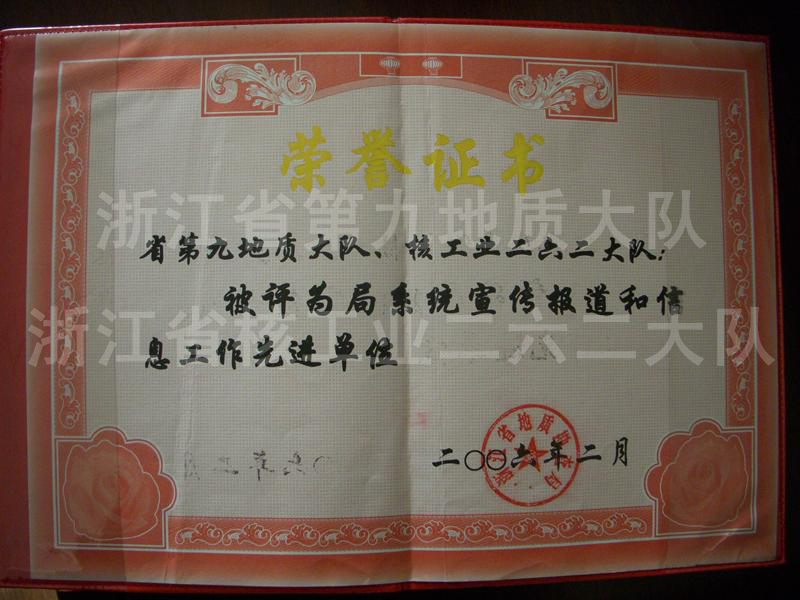 荣誉证书
浙江省第九地质大队
省第九地质大队、核工业二六二大队:
被评为局系统宣传报道和信
浙江省核工业二六二大队
息工作先进单位
二〇〇六年二月